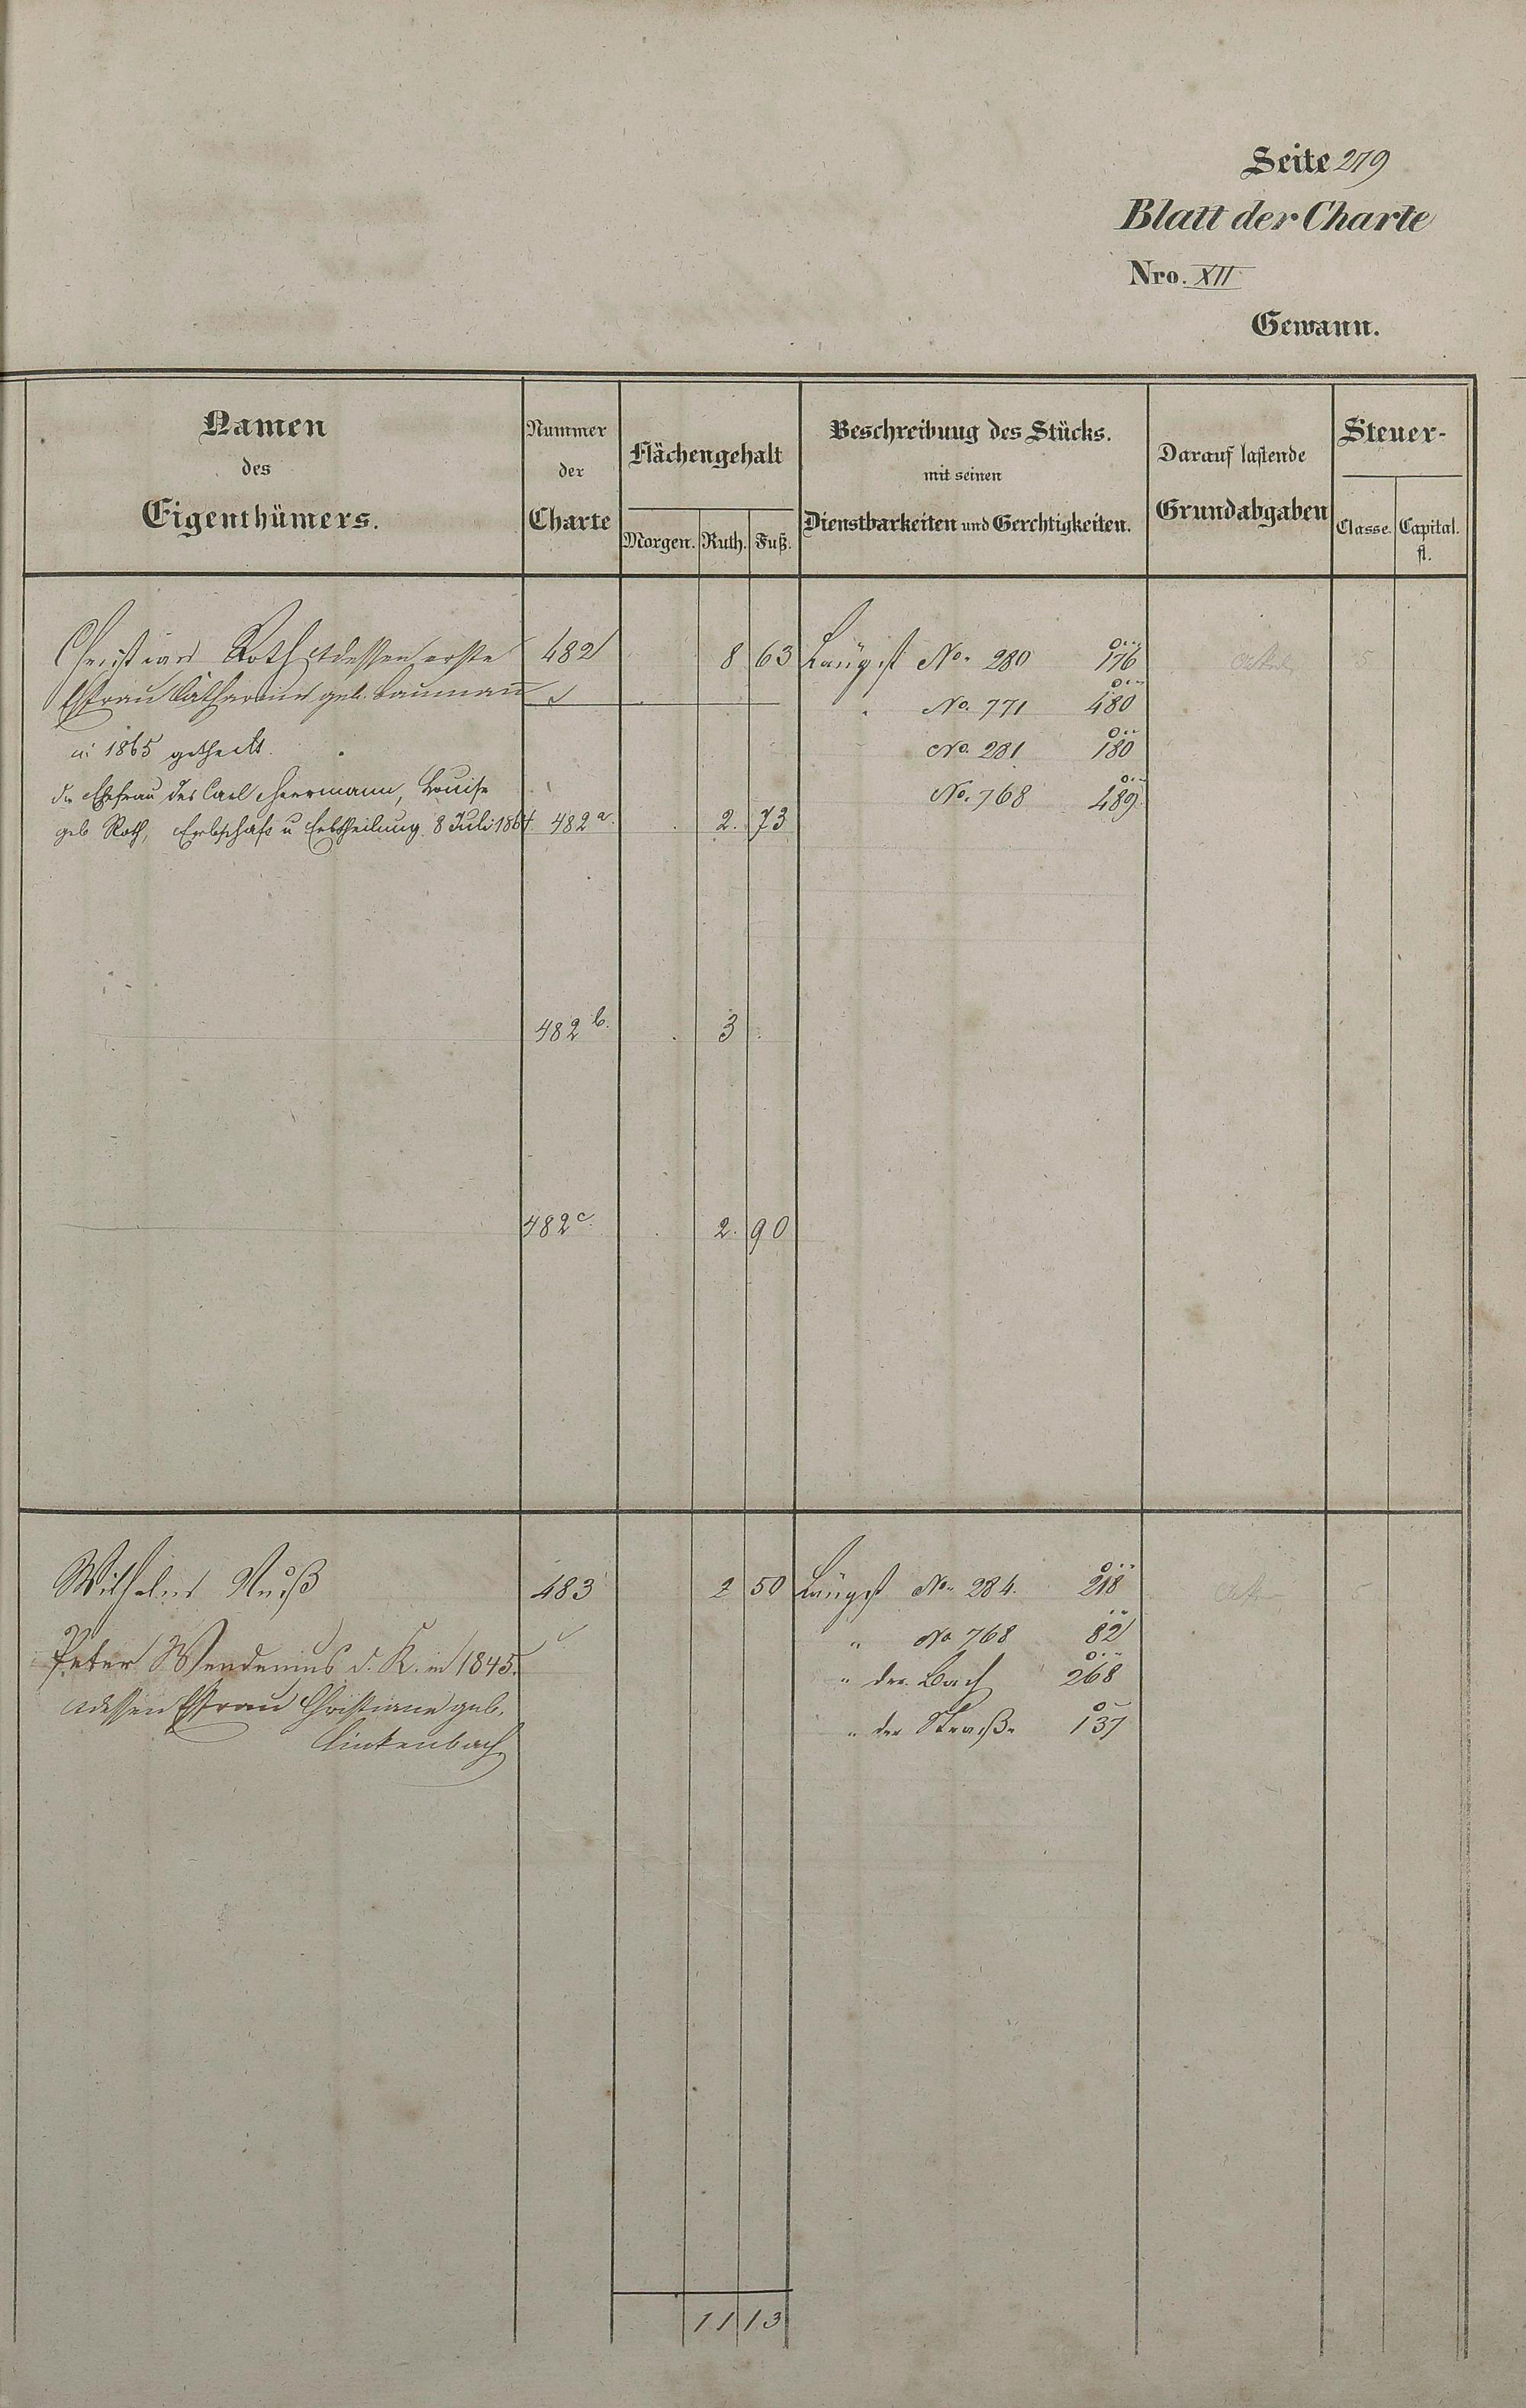 Seite 279
Blatt der Charte
Nro. XII
Gewann.
Namen des Eigenthümers.
Nummer der Charte
Flächengehalt
Morgen. Ruth. Fuß.
Beschreibung des Stücks. mit seinen Dienstbarkeiten und Gerchtigkeiten.
Darauf lastende Grundabgaben
Steuer-
Classe. Capital. fl.
Christian Roth & dessen erste 482 8 63 Längst No. 280 176 5
Efrau Catharina geb. Bauman No. 771 480
in 1865 getheilt. No. 281 180
die Ehefrau des Carl Herrmann, Louise No. 768 489
geb Roth, Erbschaft u Erbtheilung 8 Juli 1864 482 a. 2. 73
482 b. 3
482 c. 2. 90
Wilhelm Nuß 483 2 50 Längst No. 284. 218 5
" No 768 82
Peter Wendenius d. K. in 1845.
" der Bach 268
& dessen Efrau Christiane geb.
" der Straße 137
Linkenbach
11 13